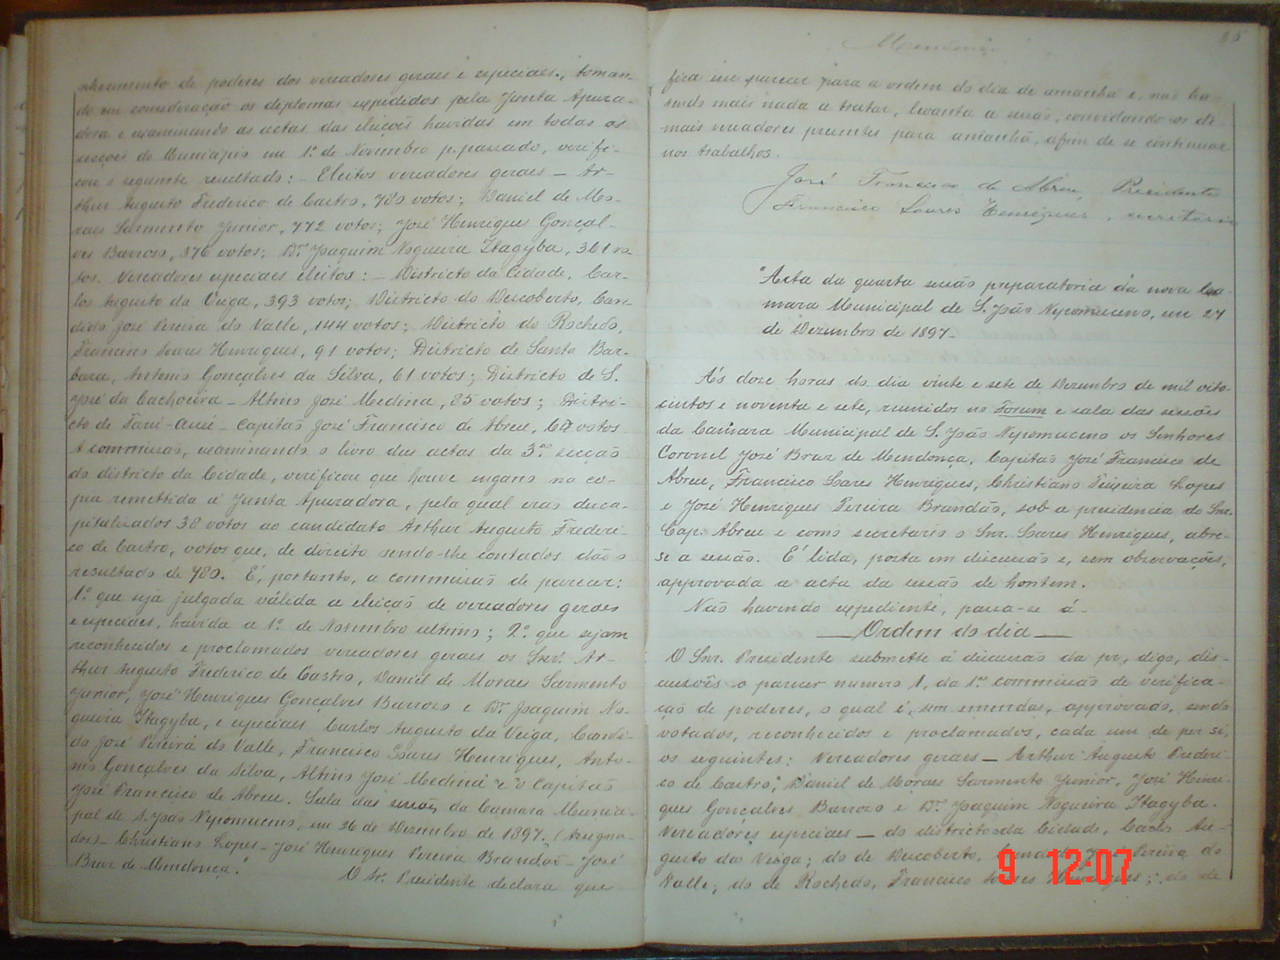 nhecimento de poderes dos vereadores geraes e especiaes, toman-
do em consideração os diplomas expedidos pela Junta Apura-
dora e examinando as actas das eleições havidas em todas as
secções do Municipio em 1º de Novembro p. passado, verifi-
cou o seguinte resultado: - Eleitos vereadores geraes - Ar-
thur Augusto Frederico de Castro, 780 votos; Daniel de Mo-
raes Sarmento Junior, 772 votos; José Henrique Gonçal-
ves Barroso, 376 votos; Dr. Joaquim Nogueira Itagyba, 361 vo-
tos. Vereadores especiaes eleitos: - Districto da Cidade, Car-
los Augusto da Veiga, 393 votos; Districto do Descoberto, Can-
dido José Pereira do Valle, 144 votos; Districto do Rochedo,
Francisco Soares Henriques, 91 votos; Districto de Santa Bar-
bara, Antonio Gonçalves da Silva, 61 votos; Districto de S.
José da Cachoeira - Altino José Medina, 85 votos; Distri-
cto de Capitão José Francisco de Abreu, votos
A commissão, examinando o livro das actas da 3ª secção
do districto da Cidade, verificou que houve engano na co-
pia remettida á Junta Apuradora, pela qual
38 votos ao candidato Arthur Augusto Frederi-
co de Castro, votos que, de direito sendo-lhe contados dão o
resultado de 780. É, portanto, a commissão de parecer:
1º que seja julgada válida a eleição de vereadores geraes
e especiaes, havida a 1º de Novembro ultimo; 2º que sejam
reconhecidos e proclamados vereadores geraes os Snrs. Ar-
thur Augusto Frederico de Castro, Daniel de Moraes Sarmento
Junior, José Henriques Gonçalves Barroso e Dr. Joaquim No-
gueira Itagyba, e especiaes Carlos Augusto da Veiga, Candi-
do José Pereira do Valle, Francisco Soares Henriques, Anto-
nio Gonçalves da Silva, Altino José Medina e o Capitão
José Francisco de Abreu. Sala das sessões da Camara Munici-
pal de S. João Nepomuceno, em 26 de Dezembro de 1897. (Assigna-
dos) - Christiano Lopes - José Henriques Pereira Brandão - José
Braz de Mendonça.
O Sr. Presidente declara que
Mendonça
fica em parecer para a ordem do dia de amanhã e, não ha-
vendo mais nada a tratar, levanta a sessão, convidando os de-
mais vereadores presentes para amanhã, afim de se continuar
nos trabalhos.
José Francisco de Abreu, Presidente
Francisco Soares Henriques, secretario
Acta da quarta sessão preparatoria da nova Ca-
mara Municipal de S. João Nepomuceno, em 27
de Dezembro de 1897.
Ás doze horas do dia vinte e sete de Dezembro de mil oito-
centos e noventa e sete, reunidos no Forum e sala das sessões
da Camara Municipal de S. João Nepomuceno os Senhores
Coronel José Braz de Mendonça, Capitão José Francisco de
Abreu, Francisco Soares Henriques, Christiano Teixeira Lopes
e José Henriques Pereira Brandão, sob a presidencia do Snr.
Cap. Abreu e como secretario o Snr. Soares Henriques, abre-
se a sessão. É lida, posta em discussão e, sem observações,
approvada a acta da sessão de hontem.
Não havendo expediente, passa-se á -
Ordem do dia
O Snr. Presidente submette á discussão da pr, digo, dis-
cussões o parecer numero 1, da 1ª commissão de verifica-
ção de poderes, o qual é, sem emendas, approvado, sendo
votados, reconhecidos e proclamados, cada um de per si,
os seguintes: Vereadores geraes - Arthur Augusto Frederi-
co de Castro, Daniel de Moraes Sarmento Junior, José Henri-
ques Gonçalves Barroso e Dr. Joaquim Nogueira Itagyba.
Vereadores especiaes - do districto da Cidade, Carlos Au-
gusto da Veiga; do de Descoberto, Candido José Pereira do
Valle; do de Rochedo, Francisco Soares Henriques; do de
9 12:07